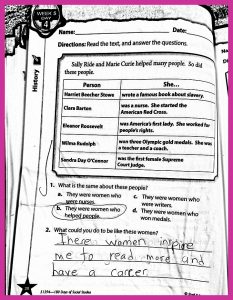 WEEK 5
DAY
4
Name:
Date:
Directions: Read the text, and answer the questions.
History
Sally Ride and Marie Curie helped many people. So did
these people.
Person She...
Harriet Beecher Stowe wrote a famous book about slavery.
Clara Barton was a nurse. She started the
American Red Cross.
Eleanor Roosevelt was America's first lady. She worked for
people's rights.
Wilma Rudolph won three Olympic gold medals. She was
a teacher and a coach.
Sandra Day O'Connor was the first female Supreme
Court Judge.
1. What is the same about these people?
a. They were women who
were nurses.
b. They were women who
helped people.
c. They were women who
were writers.
d. They were women who
won medals.
2. What could you do to be like these women?
These women inspire
me to read more and
have a career.
180 Days of Social Studies